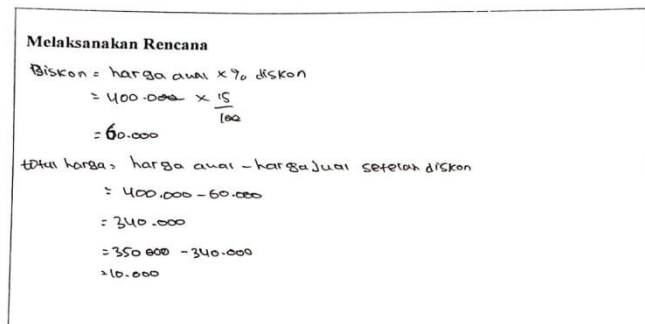 Melaksanakan Rencana
Diskon = harga awal x % diskon
= 400.000 x 15/100
= 60.000
total harga = harga awal - harga jual setelah diskon
= 400.000 - 60.000
= 340.000
= 350 000 - 340.000
= 10.000